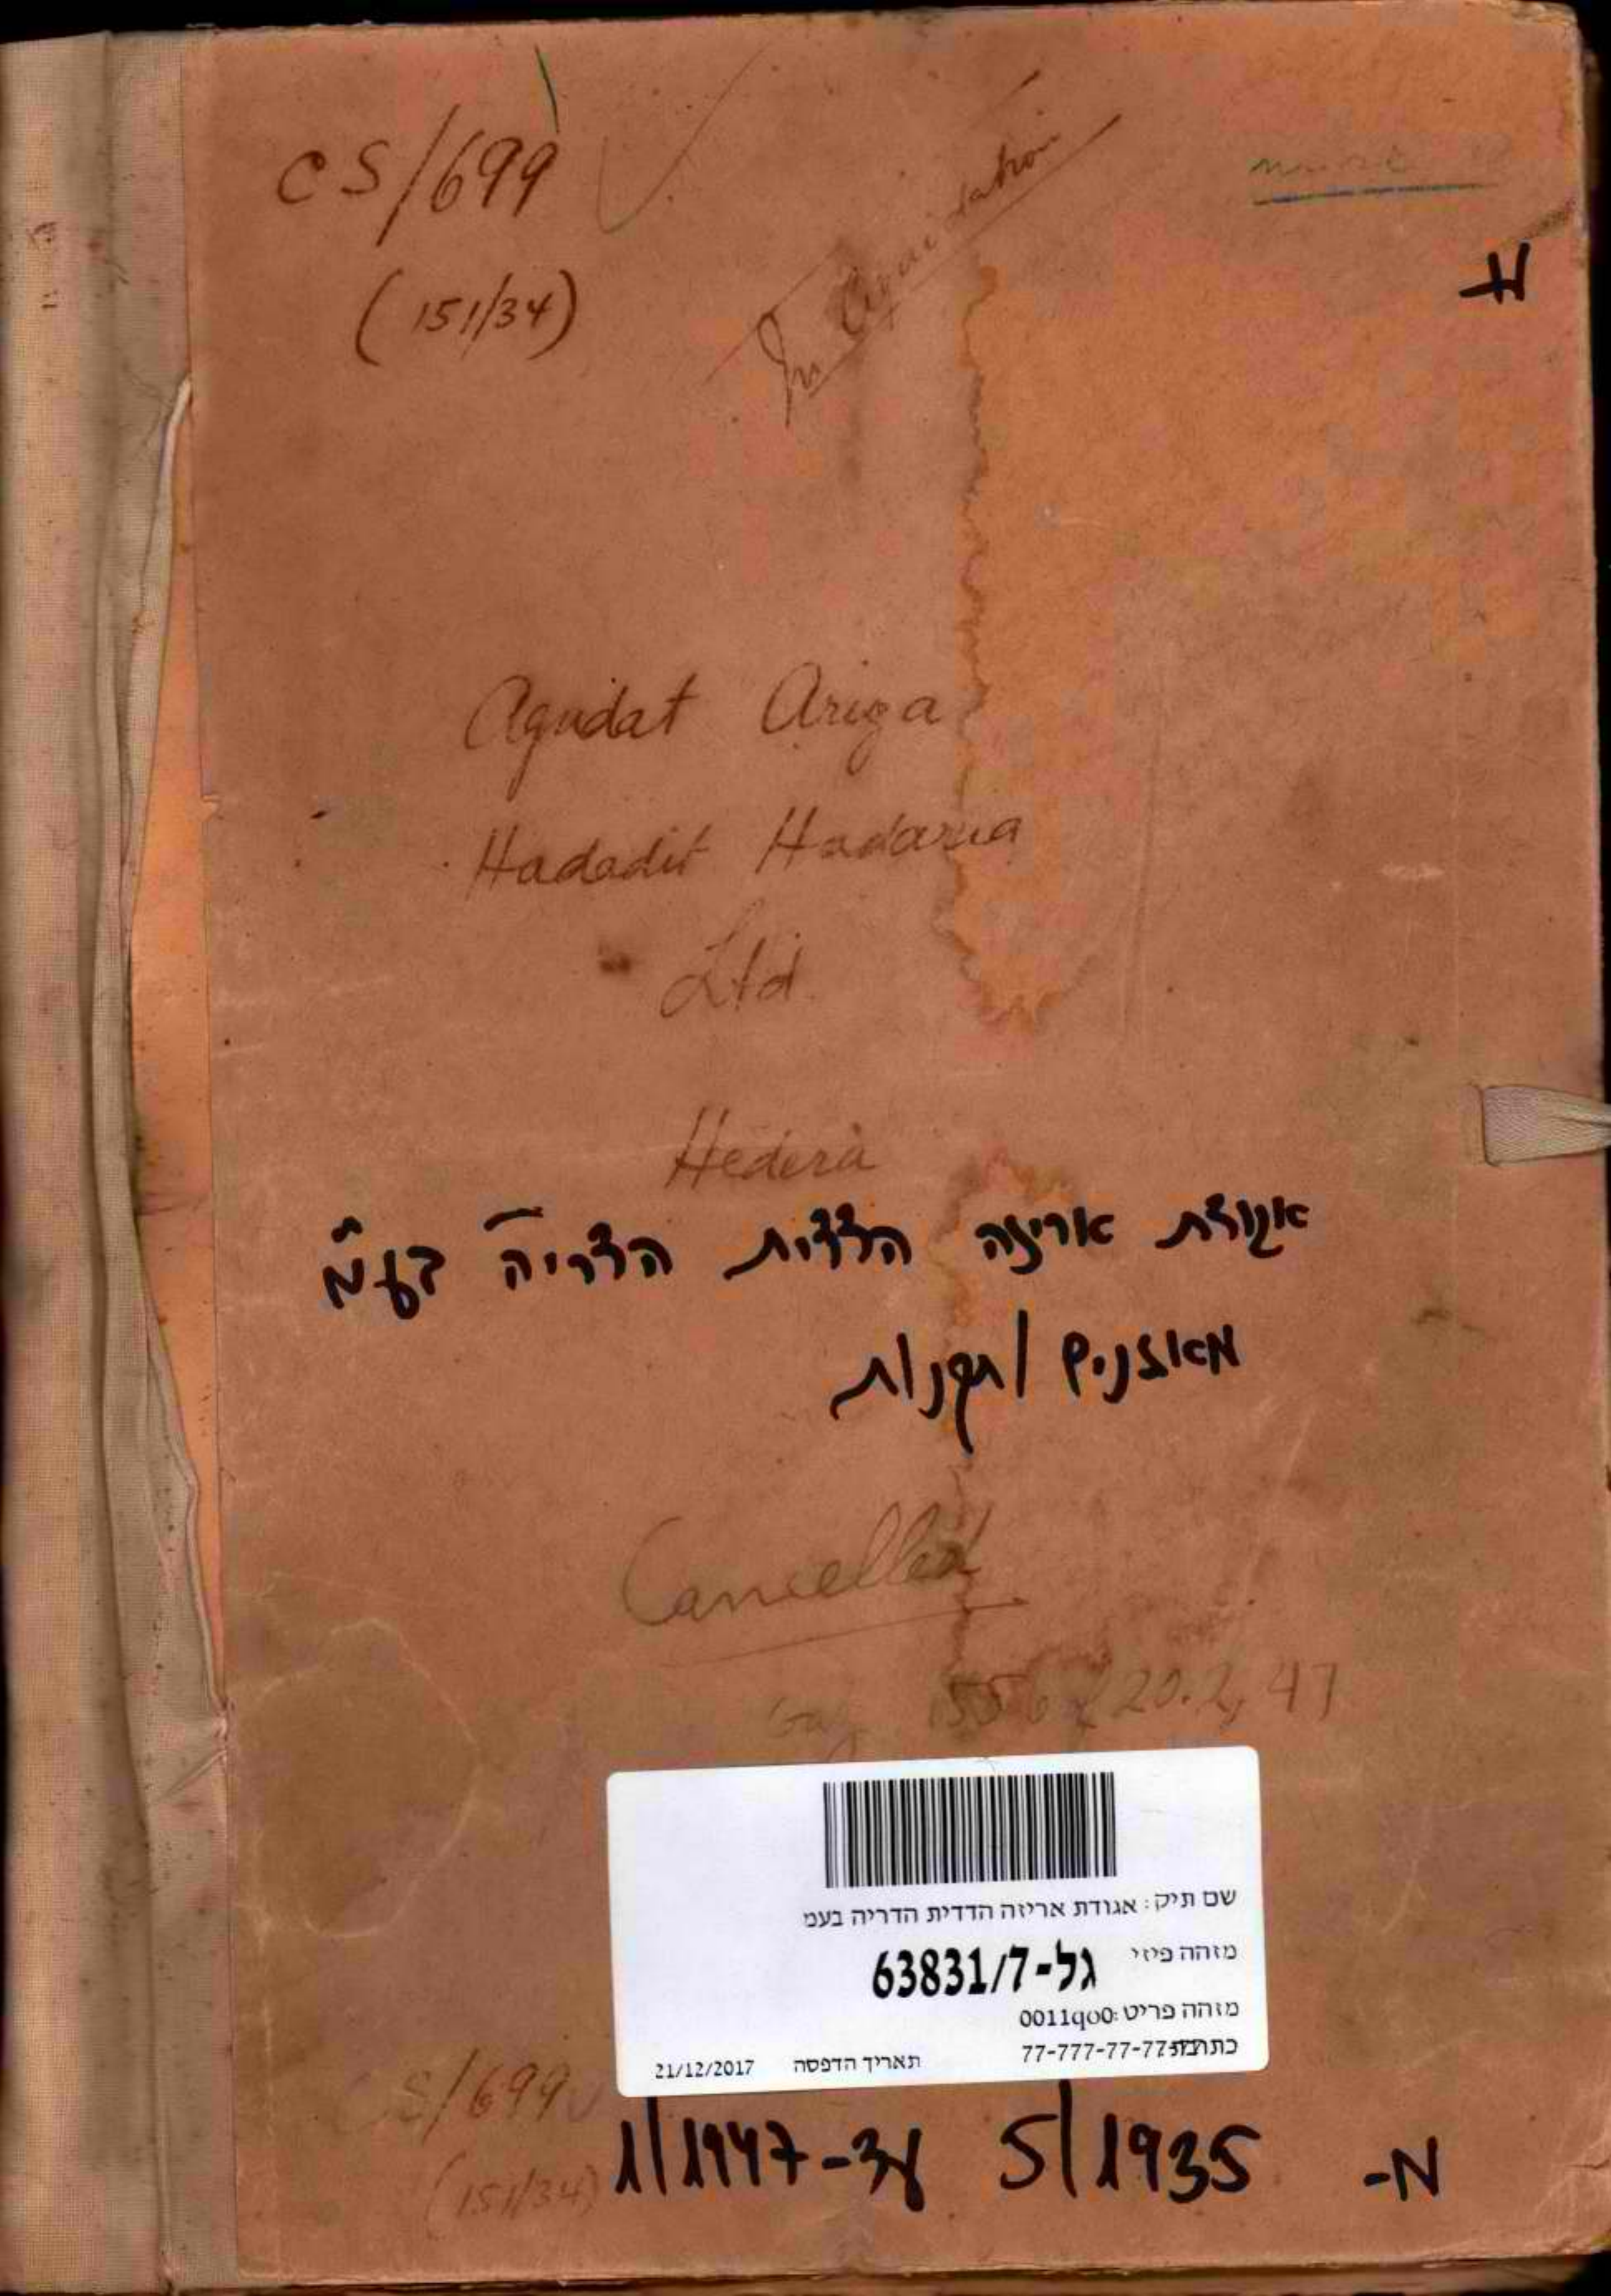 CS/699
(151/34)
In Liquidation
Agudat Ariza
Hadadit Hadaria
Ltd.
Hedera
אגודת אריזה הדדית הדריה בע"מ
מאזנים ותקנות
Cancelled
Gaz. 1556 20.2.47
שם תיק: אגודת אריזה הדדית הדריה בעמ
מזהה פיזי גל-63831/7
מזהה פריט: 0011qo0
77-777-77-77
תאריך הדפסה 21/12/2017
CS/699
(151/34)
מ- 5/1935 עד- 1/1947